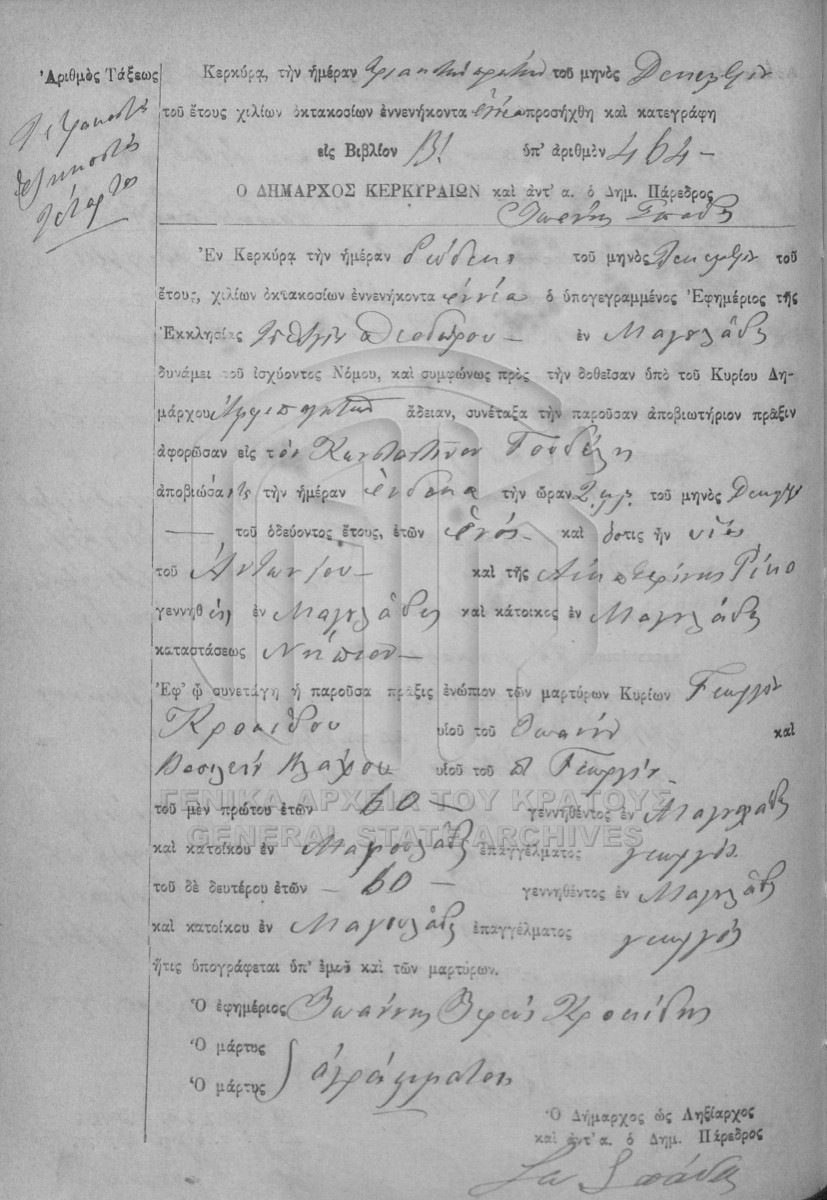 Ἀριθμὸς Τάξεως
Τετρακοστὸς
ἑξηκοστὸς
τέταρτος
Κερκύρᾳ, τὴν ἡμέραν τριακοστὴν πρώτην τοῦ μηνὸς Δεκεμβρίου
τοῦ ἔτους χιλίων ὀκτακοσίων ἐννενήκοντα ἐννέα προσήχθη καὶ κατεγράφη
εἰς Βιβλίον Β! ὑπ' ἀριθμὸν 464 —
Ο ΔΗΜΑΡΧΟΣ ΚΕΡΚΥΡΑΙΩΝ καὶ ἀντ' α. ὁ Δημ. Πάρεδρος
Ἐν Κερκύρᾳ τὴν ἡμέραν δώδεκα τοῦ μηνὸς Δεκεμβρίου τοῦ
ἔτους, χιλίων ὀκτακοσίων ἐννενήκοντα ἐννέα ὁ ὑπογεγραμμένος Ἐφημέριος τῆς
Ἐκκλησίας Θεοδώρου — ἐν Μαγουλάδες
δυνάμει τοῦ ἰσχύοντος Νόμου, καὶ συμφώνως πρὸς τὴν δοθεῖσαν ὑπὸ τοῦ Κυρίου Δη-
μάρχου ἄδειαν, συνέταξα τὴν παροῦσαν ἀποβιωτήριον πρᾶξιν
ἀφορῶσαν εἰς τὸν Κωνσταντῖνον Γουδέλη
ἀποβιώσαντα τὴν ἡμέραν ἕνδεκα τὴν ὥραν 2 μ.μ. τοῦ μηνὸς Δεκεμβρ
— τοῦ ὁδεύοντος ἔτους, ἐτῶν ἑνὸς — καὶ ὅστις ἦν υἱὸς
τοῦ Ἀντωνίου — καὶ τῆς Αἰκατερίνης Ρίκο
γεννηθεὶς ἐν Μαγουλάδες καὶ κάτοικος ἐν Μαγουλάδες
καταστάσεως Νήπιον —
Ἐφ' ᾧ συνετάγη ἡ παροῦσα πρᾶξις ἐνώπιον τῶν μαρτύρων Κυρίων Γεωργίου
Κροκίδου υἱοῦ τοῦ Ἰωάννου καὶ
Βασιλείου Βλάχου υἱοῦ τοῦ Γεωργίου
τοῦ μὲν πρώτου ἐτῶν 60 — γεννηθέντος ἐν Μαγουλάδες
καὶ κατοίκου ἐν Μαγουλάδες ἐπαγγέλματος γεωργός
τοῦ δὲ δευτέρου ἐτῶν — 60 — γεννηθέντος ἐν Μαγουλάδες
καὶ κατοίκου ἐν Μαγουλάδες ἐπαγγέλματος γεωργός
ἥτις ὑπογράφεται ὑπ' ἐμοῦ καὶ τῶν μαρτύρων.
Ὁ ἐφημέριος Ἰωάννης Ἱερεὺς Κροκίδης
Ὁ μάρτυς
Ὁ μάρτυς ἀγράμματοι
Ὁ Δήμαρχος ὡς Ληξίαρχος
καὶ ἀντ' α. ὁ Δημ. Πάρεδρος
ΓΕΝΙΚΑ ΑΡΧΕΙΑ ΤΟΥ ΚΡΑΤΟΥΣ
GENERAL STATE ARCHIVES